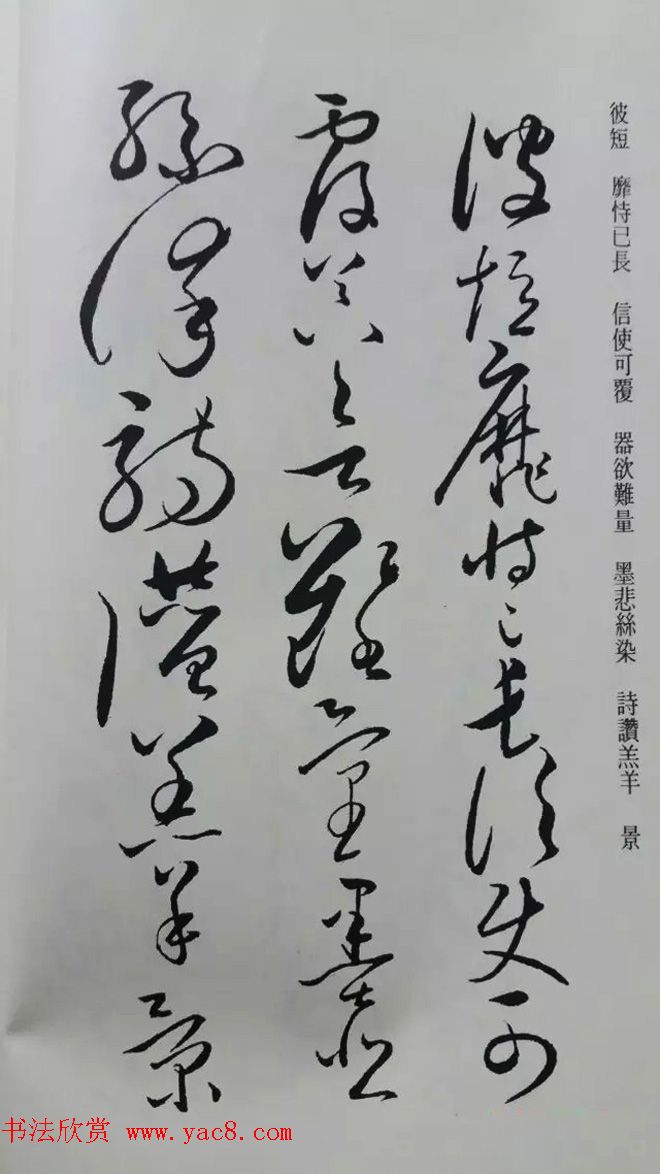 彼短靡恃己長信使可
覆器欲難量墨悲
絲染詩讚羔羊景
彼短 靡恃已長 信使可覆 器欲難量 墨悲絲染 詩讚羔羊 景
书法欣赏 www.yac8.com